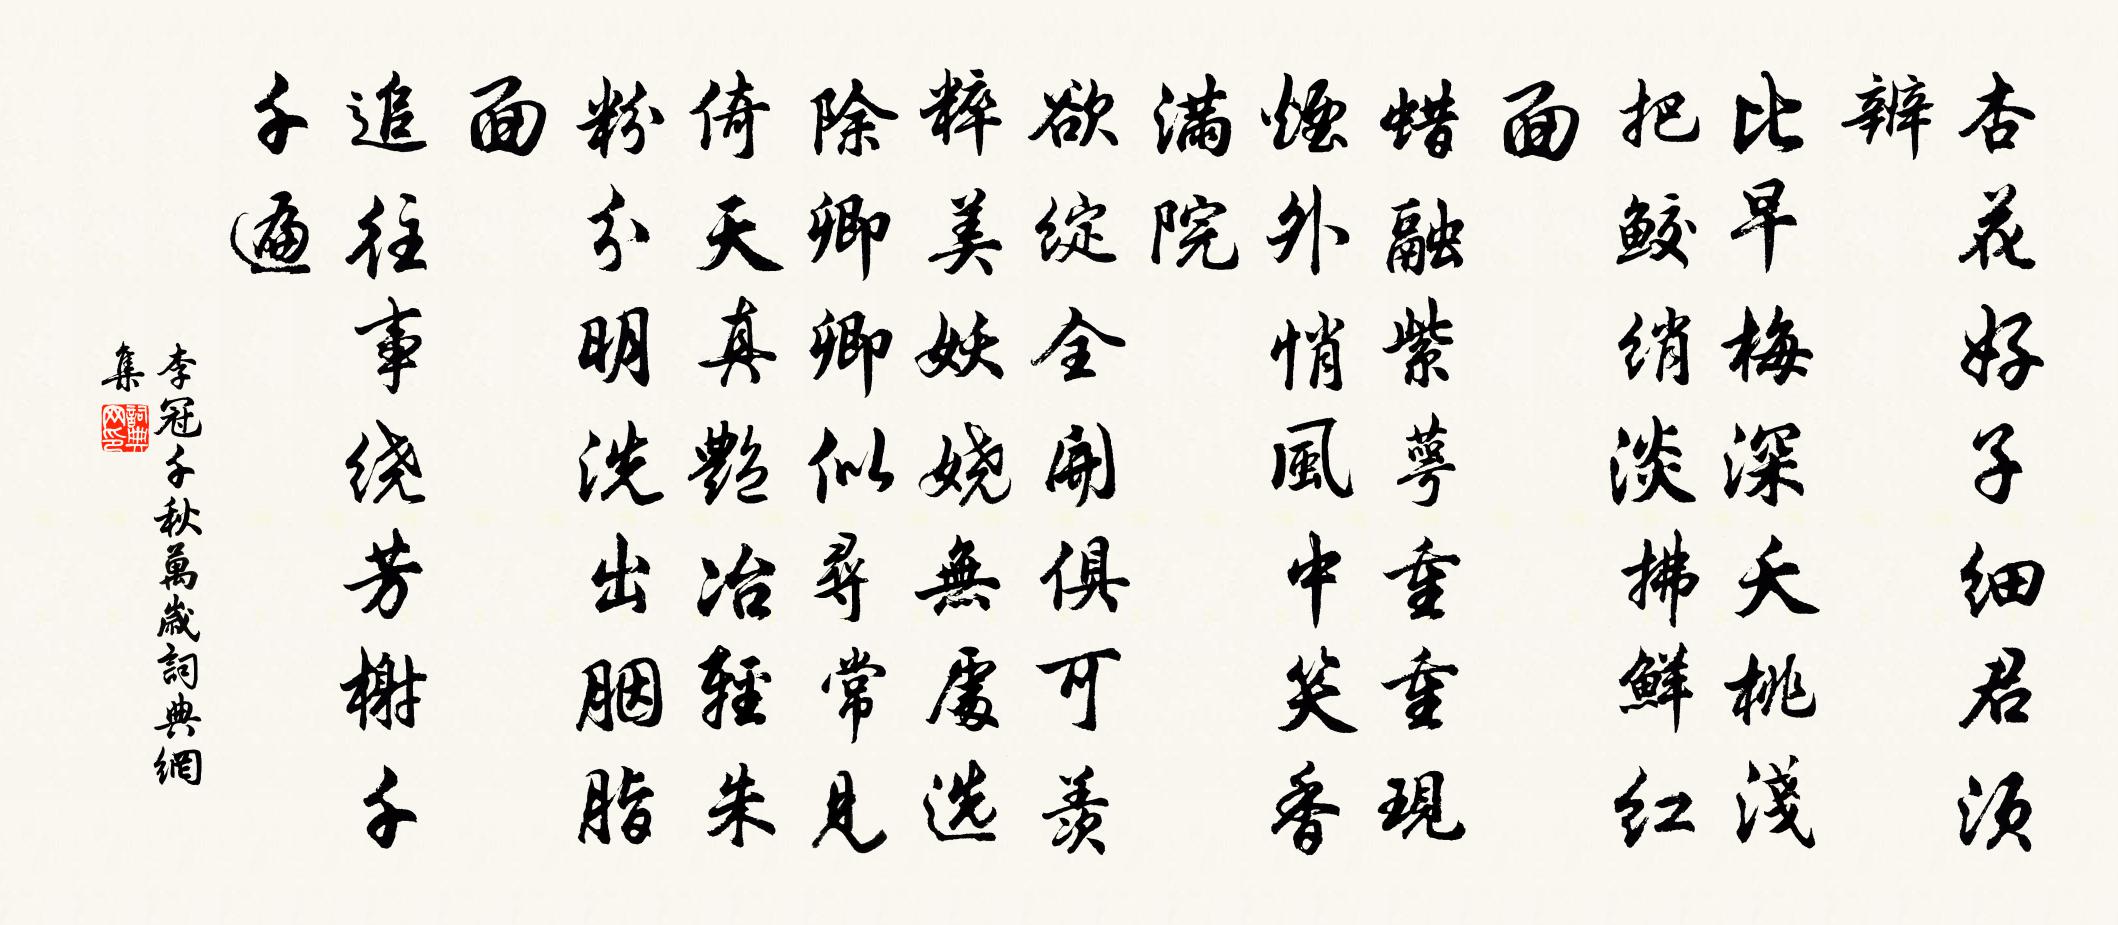 杏花好子细君须
辨
比早梅深夭桃淺
把鲛绡淡拂鮮红
面
蜡融紫萼重重現
煙外悄風中笑香
满院
欲绽全開俱可羡
粹美妖娆無處选
除卿卿似尋常見
倚天真艷冶輕朱
粉分明洗出胭脂
面
追往事绕芳榭千
千遍
李冠千秋萬歲詞典網
集
詞典
网印